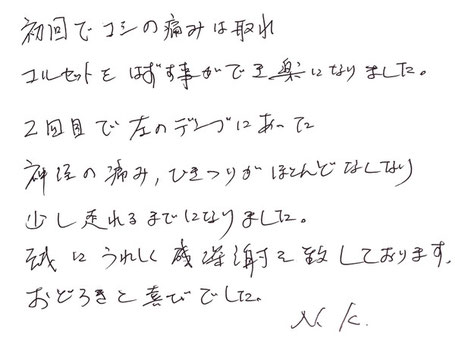 初回でコシの痛みは取れ
コルセットをはずす事ができ楽になりました。
2回目で左のデンブにあった
神経の痛み,ひきつりがほとんどなくなり
少し走れるまでになりました。
誠にうれしく感謝を致しております。
おどろきと喜びでした。
N.K.